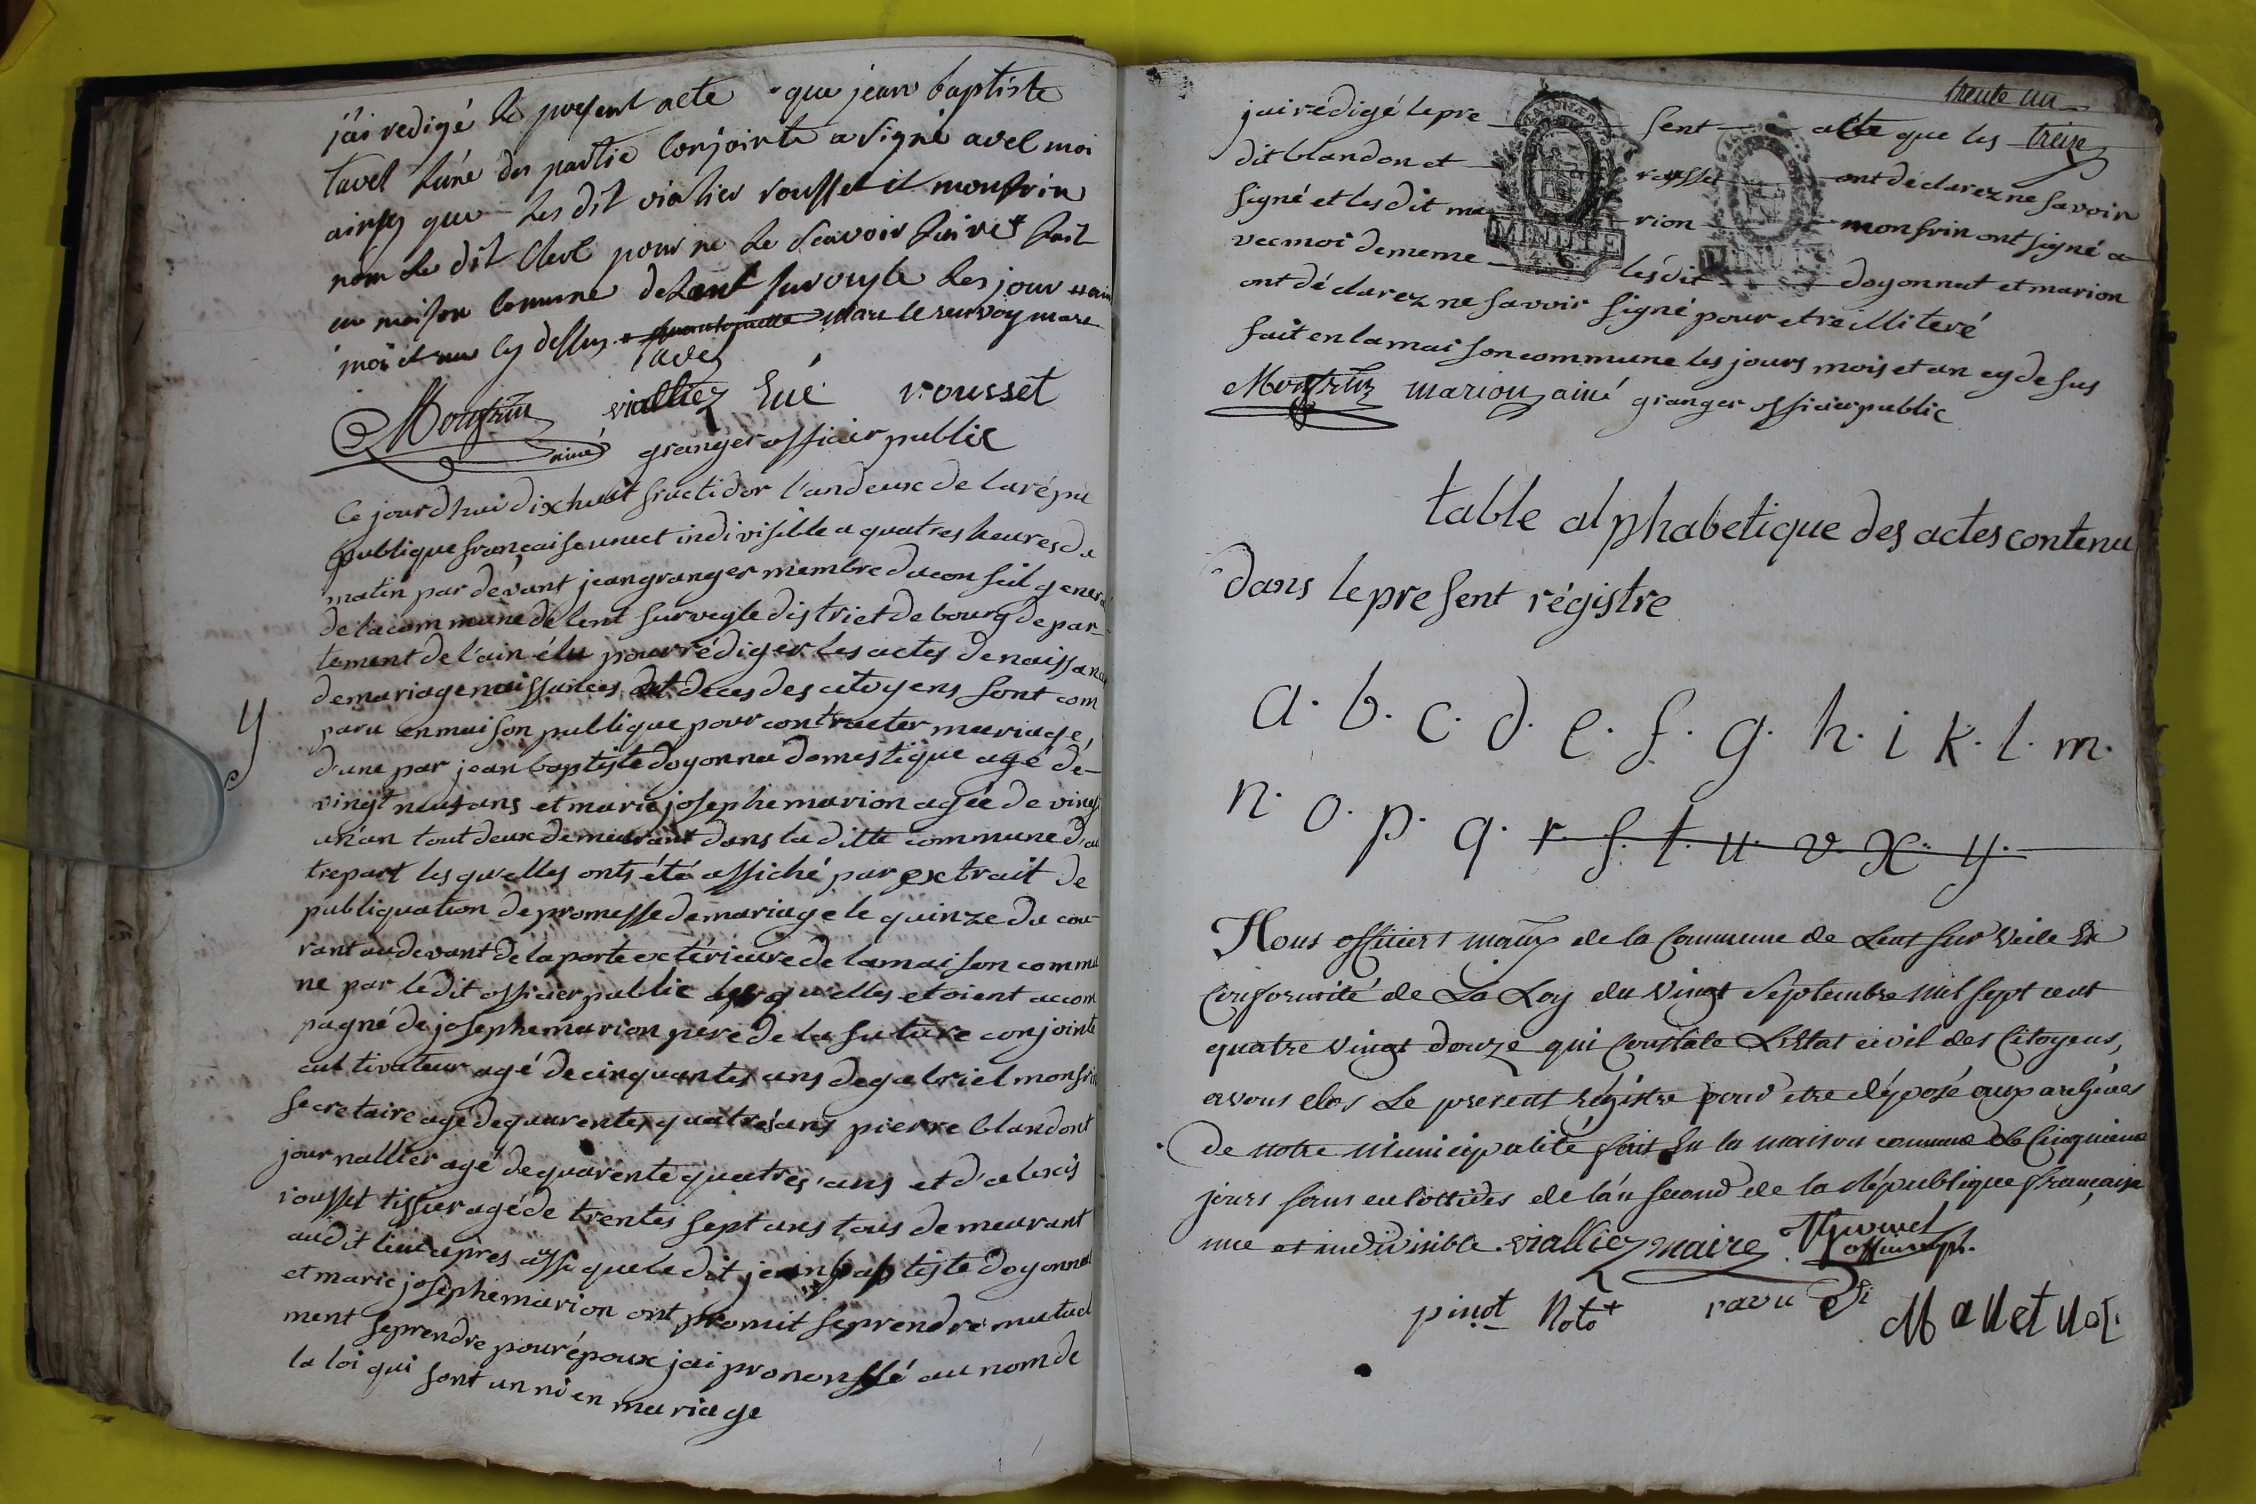 j'ai redigé le present acte que jean baptiste
tavel l'une des partie conjointe a signé avec moi
ainsy que les dit viallier rousset et monfrin
non le dit clerc pour ne le scavoir faire + fait
en maison comune de Lent sur veyle les jour
moi et an cy dessus
tavel
Monfrin viallier rousset
ainé granger officier public
Ce jourdhui dix huit fructidor l'an deux de la répu
publique française une et indivisible a quatres heures du
matin par devant jean granger membre du conseil general
de la commune de lent sur vegle district de bourg depar-
tement de l'ain élu pour rédiger les actes de naissance
de mariage naissances et deces des citoyens sont com
paru en maison publique pour contracter mariage,
d'une par jean baptiste doyonnad domestique agé de-
vingt neuf ans et marie josephe marion agée de vingt
un an tout deux demeurant dans la ditte commune d'au
trepart les quelles onts été affiché par extrait de
publiquation de promesse de mariage le quinze du cou-
rant au devant de la porte extérieure de la maison commu
ne par le dit officier public lesquelles etoient accom
pagné de josephe marion pere de la future conjointe
cultivateur agé de cinquantes ans de gabriel monfrin
secretaire agé de quarentes quatres ans pierre blandont
journallier agé de quarente quatres ans et d'alexis
rousset tissier agé de trentes sept ans tous demeurant
audit lieu apres assi que le dit jean baptiste doyonnad
et marie josephe marion ont promit se prendre mutuel
ment se prendre pour époux jai prononssé au nom de
la loi qui sont unni en mariage
y
trente un
treize
jai rédigé le pre sent acte que les
dit blandon et rousset ont déclarez ne savoir
signé et les dit ma rion monfrin ont signé a
vec moi de meme les dit doyonnat et marion
ont déclarez ne savoir signé pour etre illiteré
fait en la maison commune les jours mois et an cy de sus
Monfrin marion ainé granger officier public
MINUTE
MINUTE
table alphabetique des actes contenu
dans le present régistre
a. b. c. d. e. f. g. h. i k. l. m.
n. o. p. q. r. s. t. u. v. x. y.
Nous officiers maux de la Commune de Lent sur Veile En
Conformité de La Loy du Vingt Septembre mil sept cent
quatre vingt douze qui Constate L'Etat civil des Citoyens,
avons clos Le present régistre pour etre déposé aux archives
de notre Municipalité fait En la maison commune Le Cinquieme
jours sans culottides de l'an second de la République française
une et indivisible. vialliez maire
officier
pinot Nots ravu Manet Not.